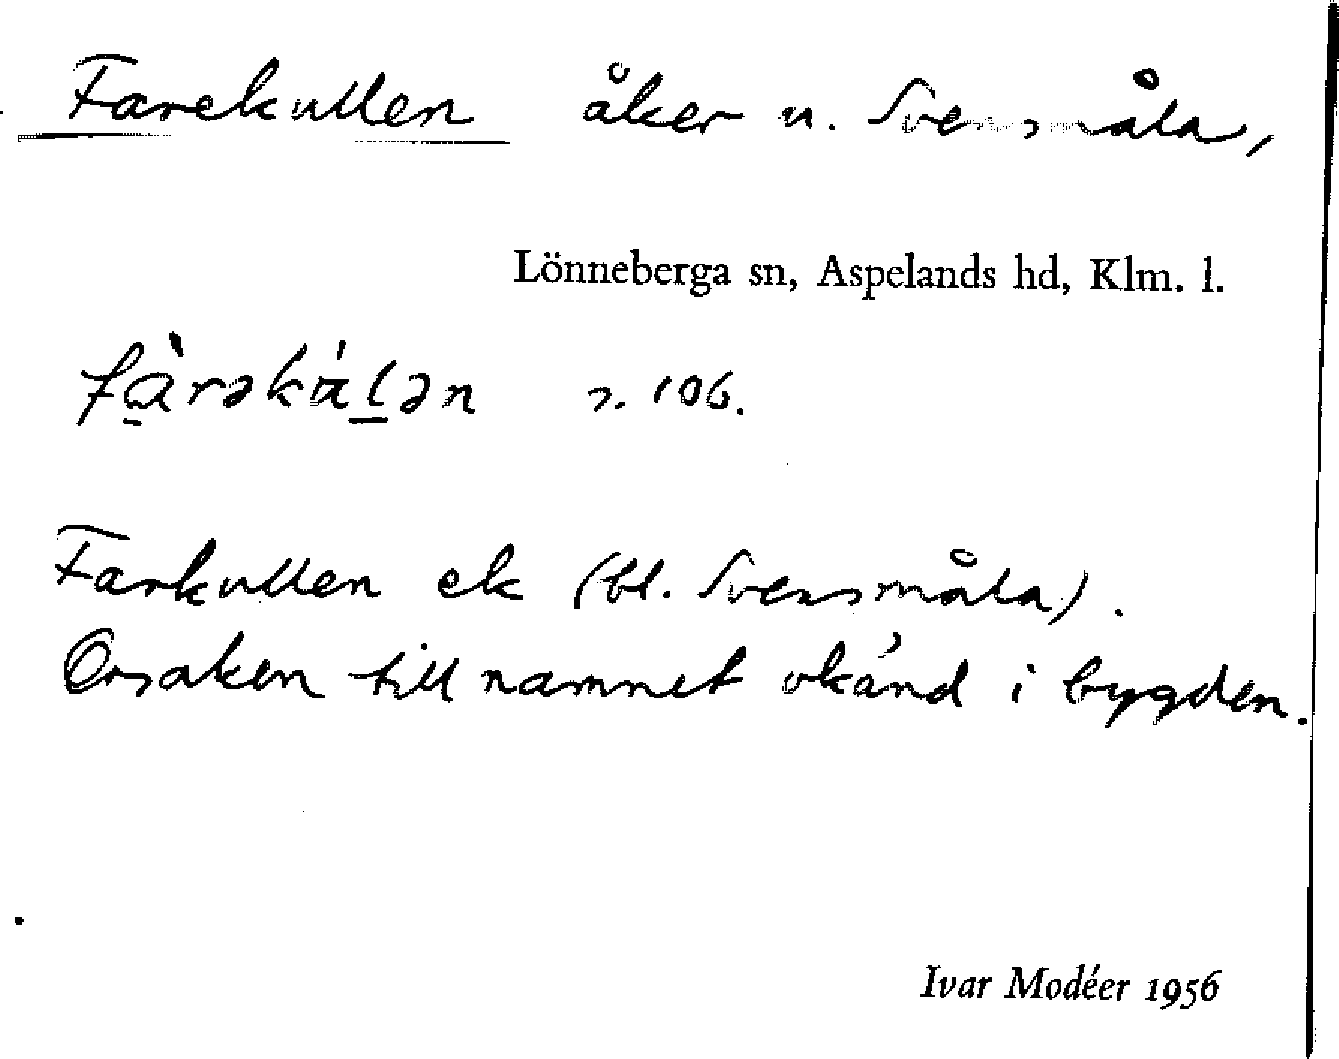 Farekullen åker u. Svensmåla,
Lönneberga sn, Aspelands hd, Klm. l.
s. 106.
Farkullen ek (bl. Svensmåla).
Orsaken till namnet okänd i bygden.
Ivar Modéer 1956